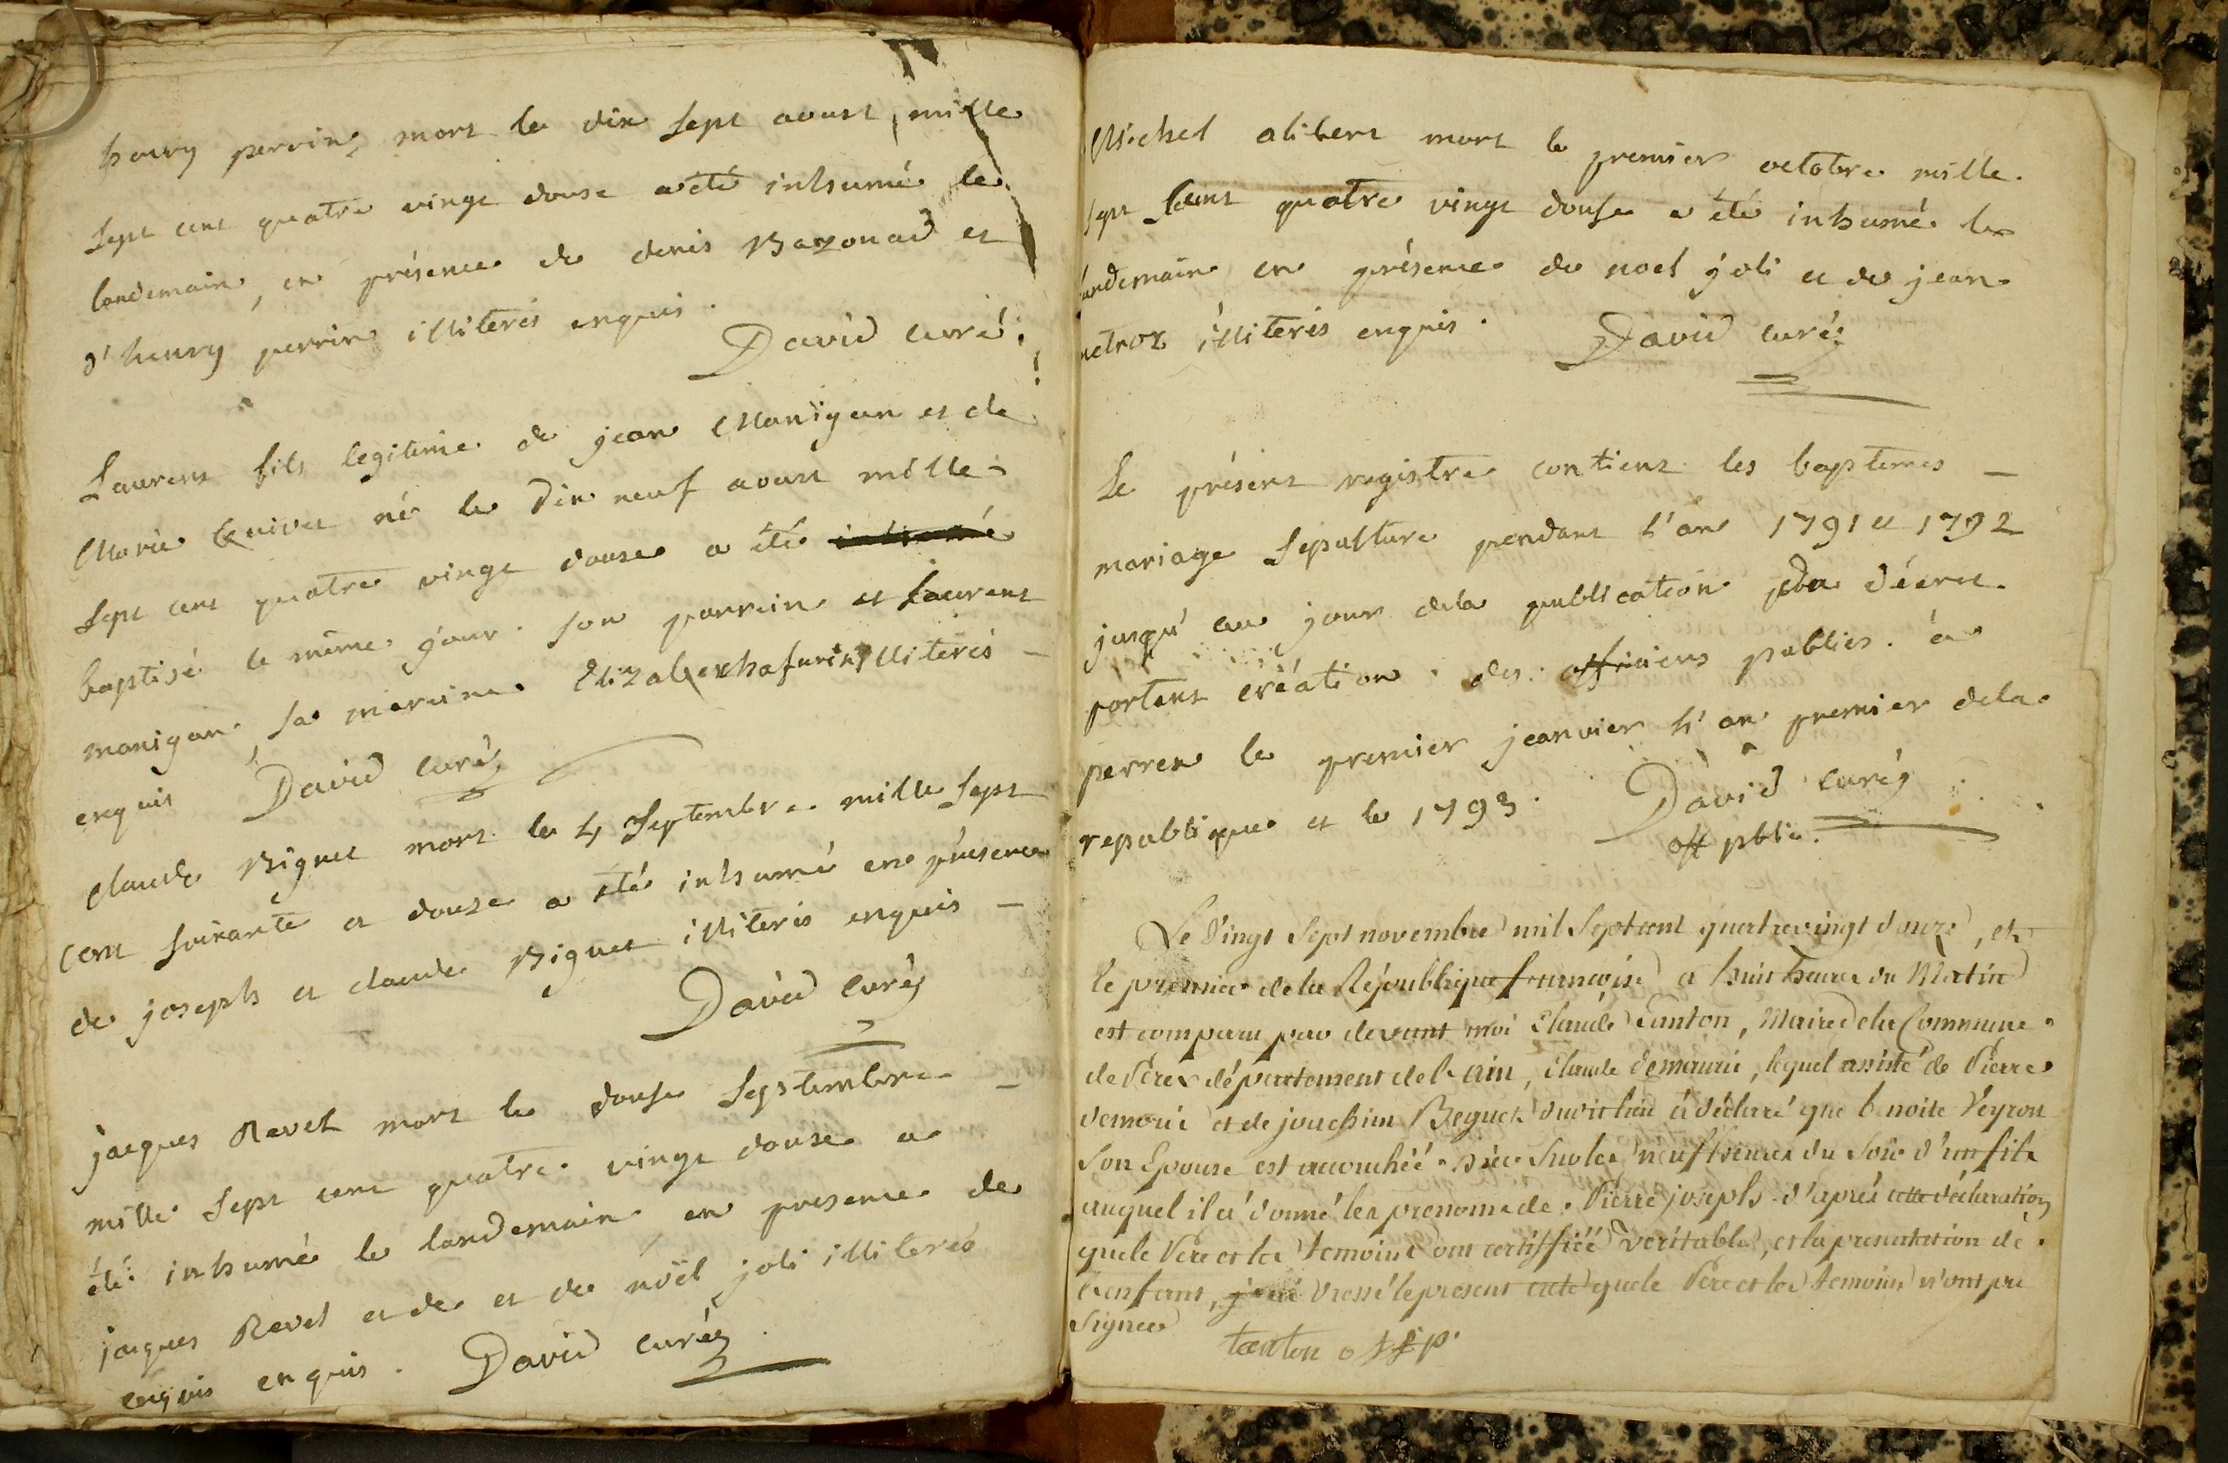 henry perrin mort le dix sept aoust mille
sept cent quatre vingt douse a été inhumé le
landemain, en présence de denis Bazonad et
d'henry perrin illiterés enquis.
David curé
Laurent fils legitime de jean Manigan et de
Marie né le dix neuf aoust mille
sept cent quatre vingt douse a été inhumé
baptisé le même jour. son parrain et Laurent
manigan, sa maraine. Elizabeth illiterés -
enquis David curé
Claude Niguet mort le 4 septembre mille sept
cent soixante et douze a été inhumé en présence
de joseph et claude Niguet illiterés enquis -
David curé
jacques Revel mort le douse septembre -
mille sept cent quatre vingt douse a
été inhumé le landemain en presence de
jacques Revel et de et de noël joli illiterés
enquis enquis. David curé
Michel alibert mort le premier octobre mille
sept cent quatre vingt douse a été inhumé le
landemain en présence de noel joli et de jean
illiterés enquis. David curé
Le présent registre contient les baptemes -
mariage sepulture pendant l'an 1791 et 1792
jusqu'au jour de la publication du décret
portant création des officiers publics. à
perrex le premier jeanvier l'an premier de la
republique et le 1793. David curé
off pblic.
Le vingt sept novembre mil sept cent quatre vingt douze, et
le premier de la République françoise a huit heures du Matin
est comparu par devant moi Claude Tanton, Maire de la Commune
de Perex département de l'ain, Claude demourié, lequel assisté de Pierre
demourié et de joachim Beguet dudit lieu a déclaré que benoite Veyron
son Epouse est accouchéé hier sur les neuf heures du soir d'un fils
auquel il a donné les prenoms de Pierre joseph d'après cette déclaration
que le Père et les temoins ont certiffiéé veritable, et la presentation de
l'enfant, j'ai dressé le present acte que le Père et les temoins n'ont pu
signer
tanton off p.